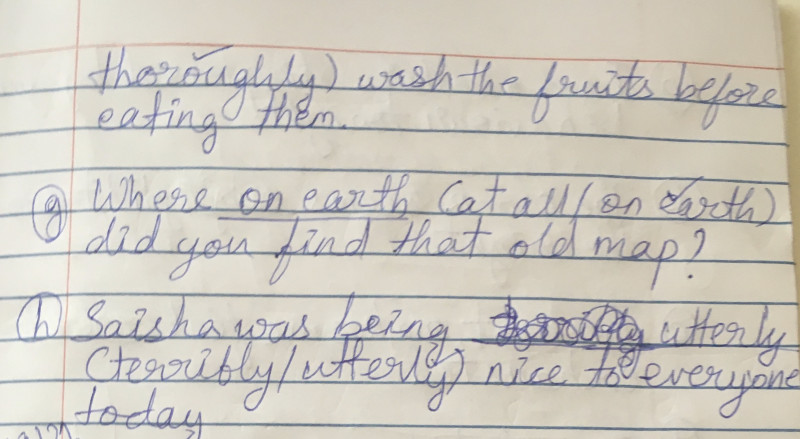 thoroughly) wash the fruits before
eating them.
(g) Where on earth (at all/on earth)
did you find that old map?
(h) Saisha was being utterly
(terribly/utterly) nice to everyone
today